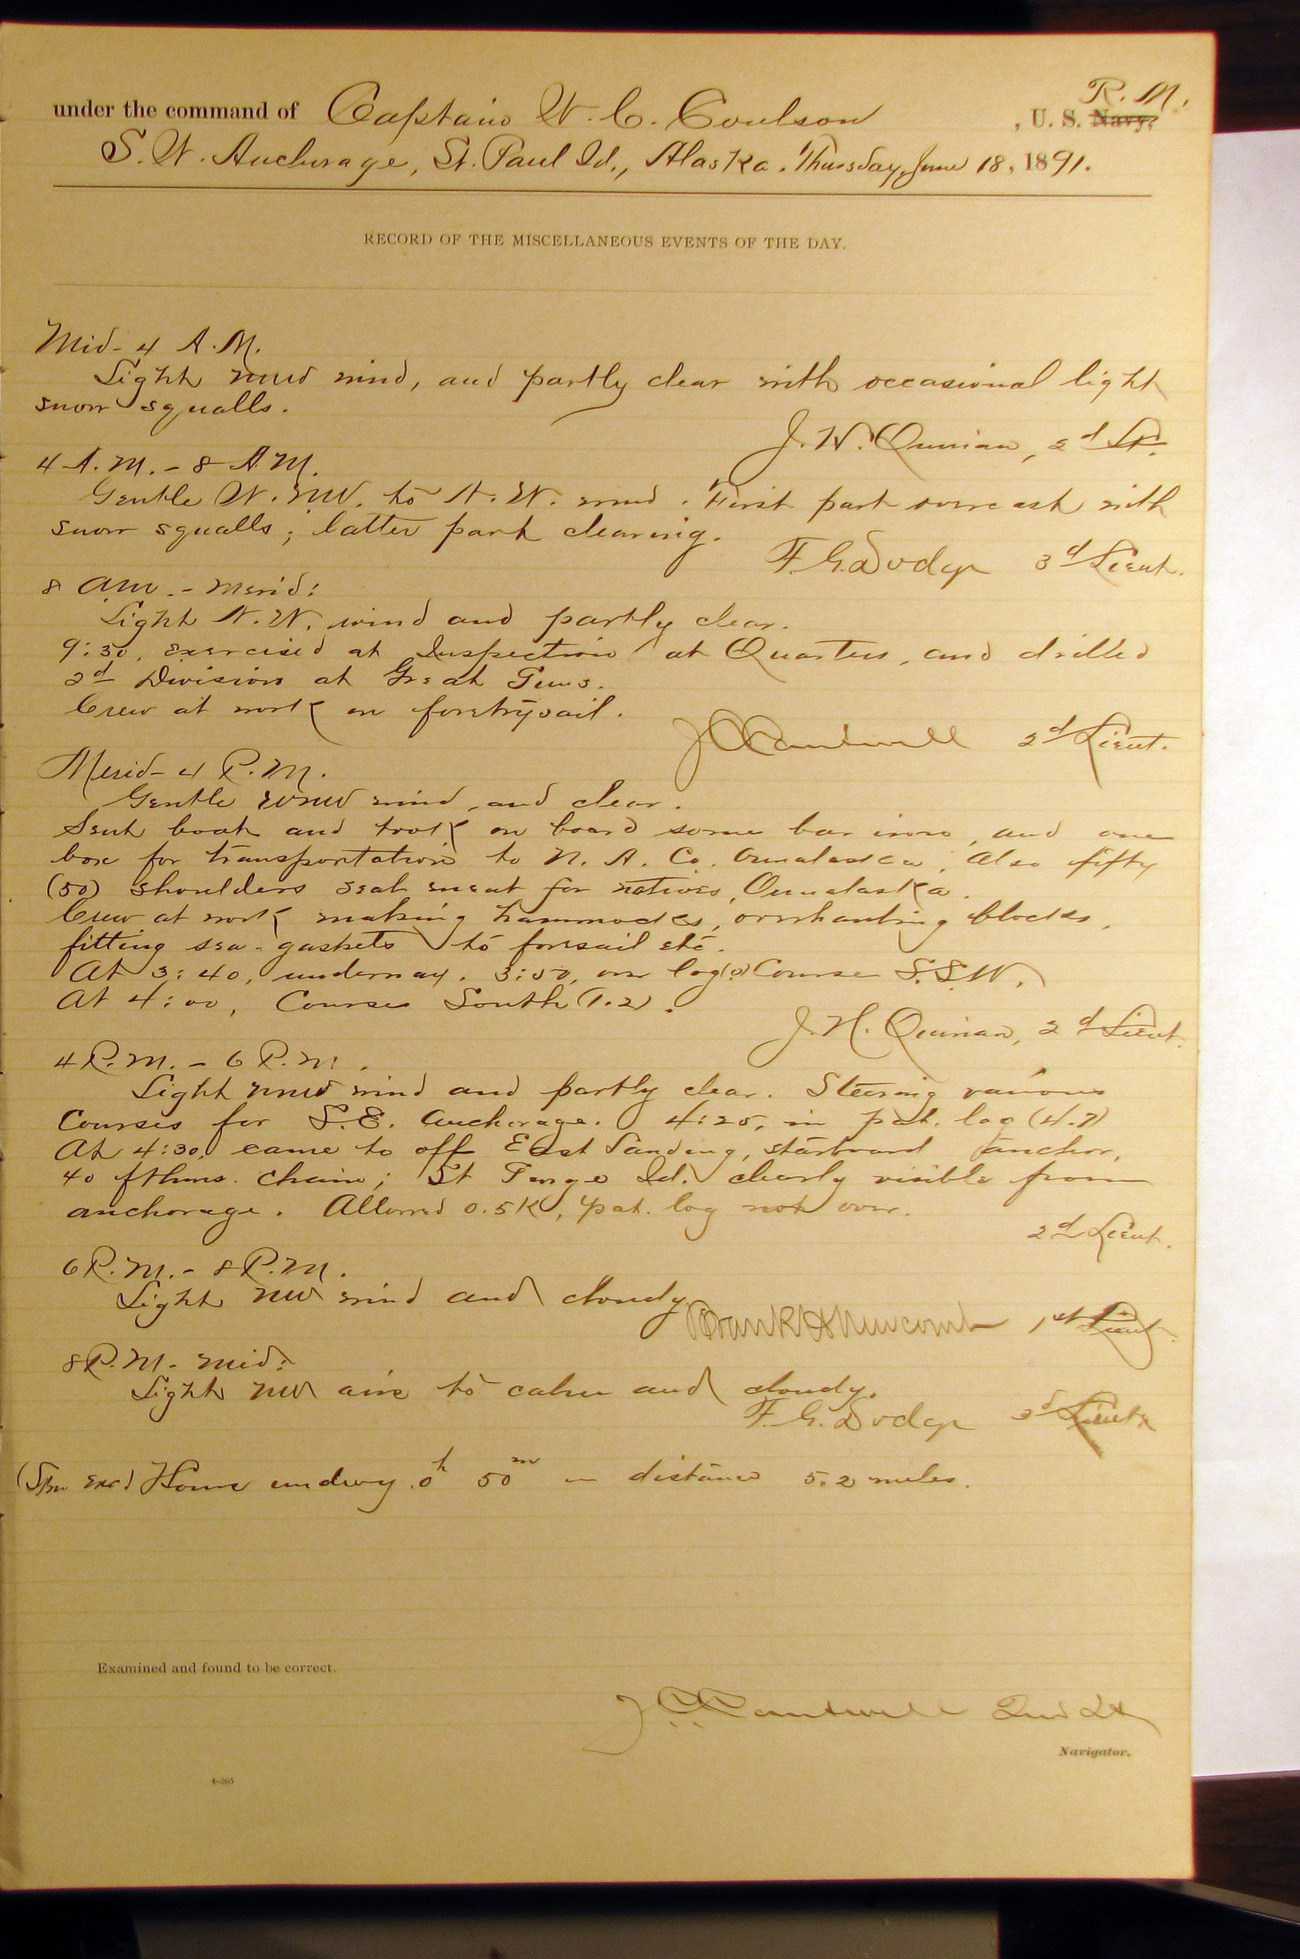 under the command of Captain W. C. Coulson, U. S. Navy, R. M.
S. W. Anchorage, St. Paul Id., Alaska. Thursday, June 18, 1891.
RECORD OF THE MISCELLANEOUS EVENTS OF THE DAY.
Mid - 4 A.M.
Light NNW wind, and partly clear with occasional light
snow squalls.
J. H. Quinan, 2d Lt.
4 A.M. - 8 A.M.
Gentle W. NW. to N. W. wind. First part overcast with
snow squalls; latter part clearing.
F. G. Dodge 3d Lieut.
8 am. - merid:
Light N. W. wind and partly clear.
9:30, exercised at Inspection at Quarters, and drilled
2d Division at Great Guns.
Crew at work on foretrysail.
J C Cantwell 2d Lieut.
Merid - 4 P.M.
Gentle WNW wind, and clear.
Sent boat and took on board some bar iron, and one
box for transportation to N. A. Co. Ounalaska. Also fifty
(50) shoulders seal meat for natives, Ounalaska.
Crew at work making hammocks, overhauling blocks,
fitting sea-gaskets to foresail etc.
At 3:40, underway. 3:50, over log (0) Course S.SW.
At 4:00, Course South (1.2).
J. H. Quinan, 2d Lieut.
4 P.M. - 6 P.M.
Light NNW wind and partly clear. Steering various
Courses for S.E. Anchorage. 4:25, in pat. log (4.7)
At 4:30, came to off East Landing, starboard anchor,
40 fthms. chain; St George Id. clearly visible from
anchorage. Allowed 0.5 K, pat. log not over.
2d Lieut.
6 P.M. - 8 P.M.
Light NW wind and cloudy.
Frank H Newcomb 1st Lieut.
8 P.M. - mid:
Light NW airs to calm and cloudy.
F. G. Dodge 3d Lieut
Hours undwy. 0h 50m - distance 5.2 miles.
Examined and found to be correct.
J C Cantwell 2nd Lt
Navigator.
4-265